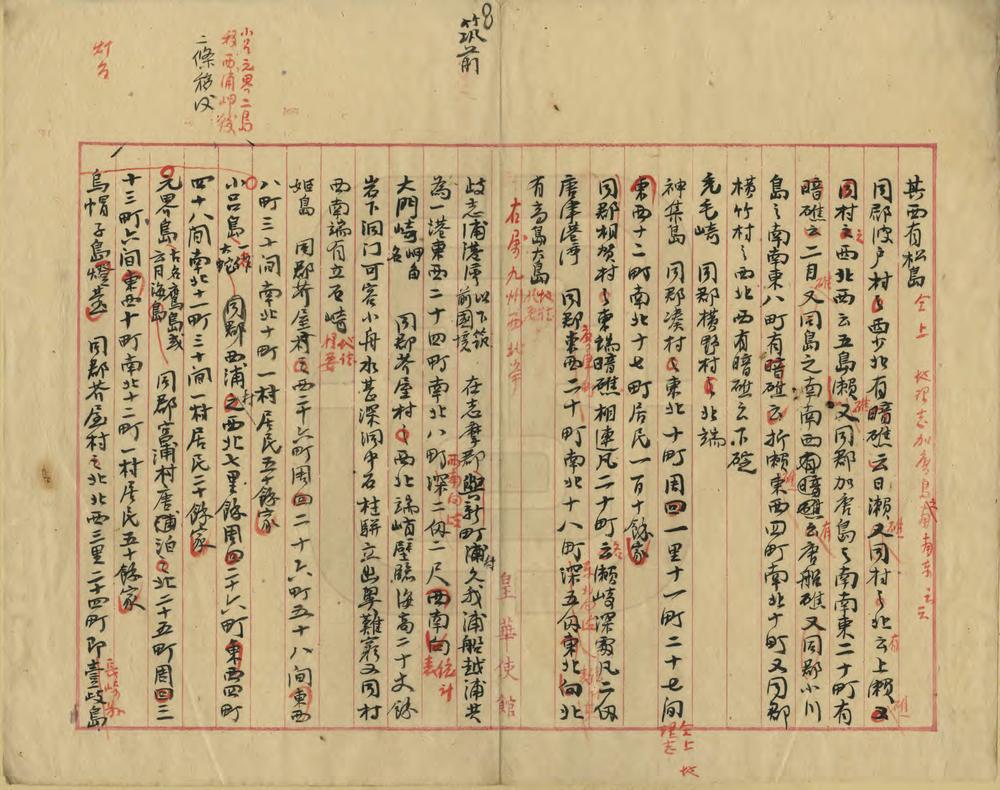 8
筑前
其西有松島
同郡波戸村之西少北有暗礁云日瀬又同村之北云上瀬又
同村之西北西云五島瀬又同郡加唐島之南南東二十町有
暗礁云二目又同島之南南西有暗礁云唐船礁又同郡小川
島之南南東八町有暗礁云折瀬東西四町南北十町又同郡
横竹村之西北西有暗礁云下碇
免毛崎　同郡横野村之北端
神集島　同郡湊村之東北十町周回一里十一町二十七間
東西十二町南北十七町居民一百十餘家
同郡相賀村之東端暗礁相連凡二十町云瀬崎深處凡二仞
唐津港澤　同郡東西二十町南北十八町深五仞東北向北
有高島大島
右屬九州西北岸
岐志浦港澤以下筑前國境　在志摩郡與新町浦久我浦船越浦共
為一港東西二十四町南北八町深二仞二尺西南向
大門崎岬由名　同郡芥屋村之西北端峭壁臨海高二十丈餘
岩下洞門可容小舟水甚深洞中石柱駢立出奥難窮又同村
西南端有立石崎
姫島　同郡芥屋村之西二十六町周回二十六町五十八間東西
八町三十間南北十町一村居民五十餘家
小呂島　同郡西浦之西北七里餘周回二十六町東西四町
四十八間南北十一町三十間一村居民二十餘家
玄界島　同郡宮浦村唐浦泊之北二十五町周回三
十三町六間東西十町南北十二町一村居民五十餘家
烏帽子島燈臺　同郡芥屋村之北北西三里二十四町即壹岐島
小呂玄界二島
移西浦岬後
二條移後
灯台
皇華使館
仝上